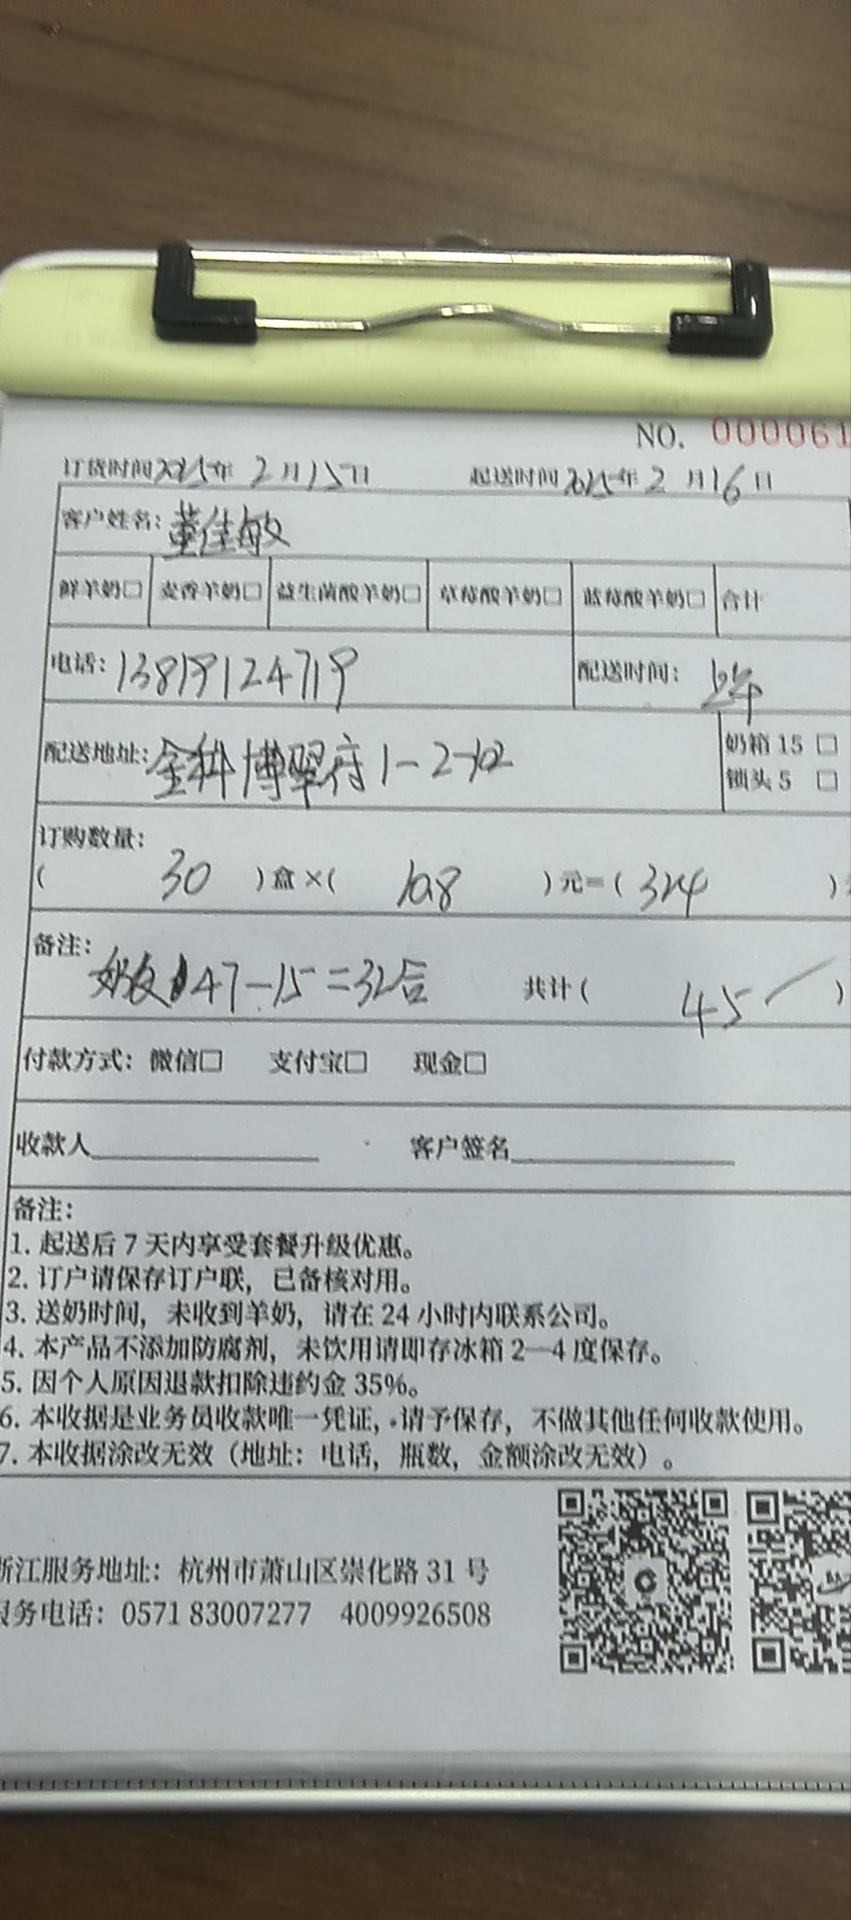 NO. 0000061
订货时间2025年2月15日 起送时间2025年2月16日
客户姓名：董佳敏
鲜羊奶□ 麦香羊奶□ 益生菌酸羊奶□ 草莓酸羊奶□ 蓝莓酸羊奶□ 合计
电话：13819124719 配送时间：
配送地址：金科博翠府1-2-102 奶箱15 □
锁头5 □
订购数量：
( 30 )盒×( 10.8 )元=( 324 )
备注： 47-15=32 共计( 45 )
付款方式：微信□ 支付宝□ 现金□
收款人 客户签名
备注：
1. 起送后7天内享受套餐升级优惠。
2. 订户请保存订户联，已备核对用。
3. 送奶时间，未收到羊奶，请在24小时内联系公司。
4. 本产品不添加防腐剂，未饮用请即存冰箱2—4度保存。
5. 因个人原因退款扣除违约金35%。
6. 本收据是业务员收款唯一凭证，请予保存，不做其他任何收款使用。
7. 本收据涂改无效（地址：电话，瓶数，金额涂改无效）。
浙江服务地址：杭州市萧山区崇化路31号
服务电话：0571 83007277 4009926508